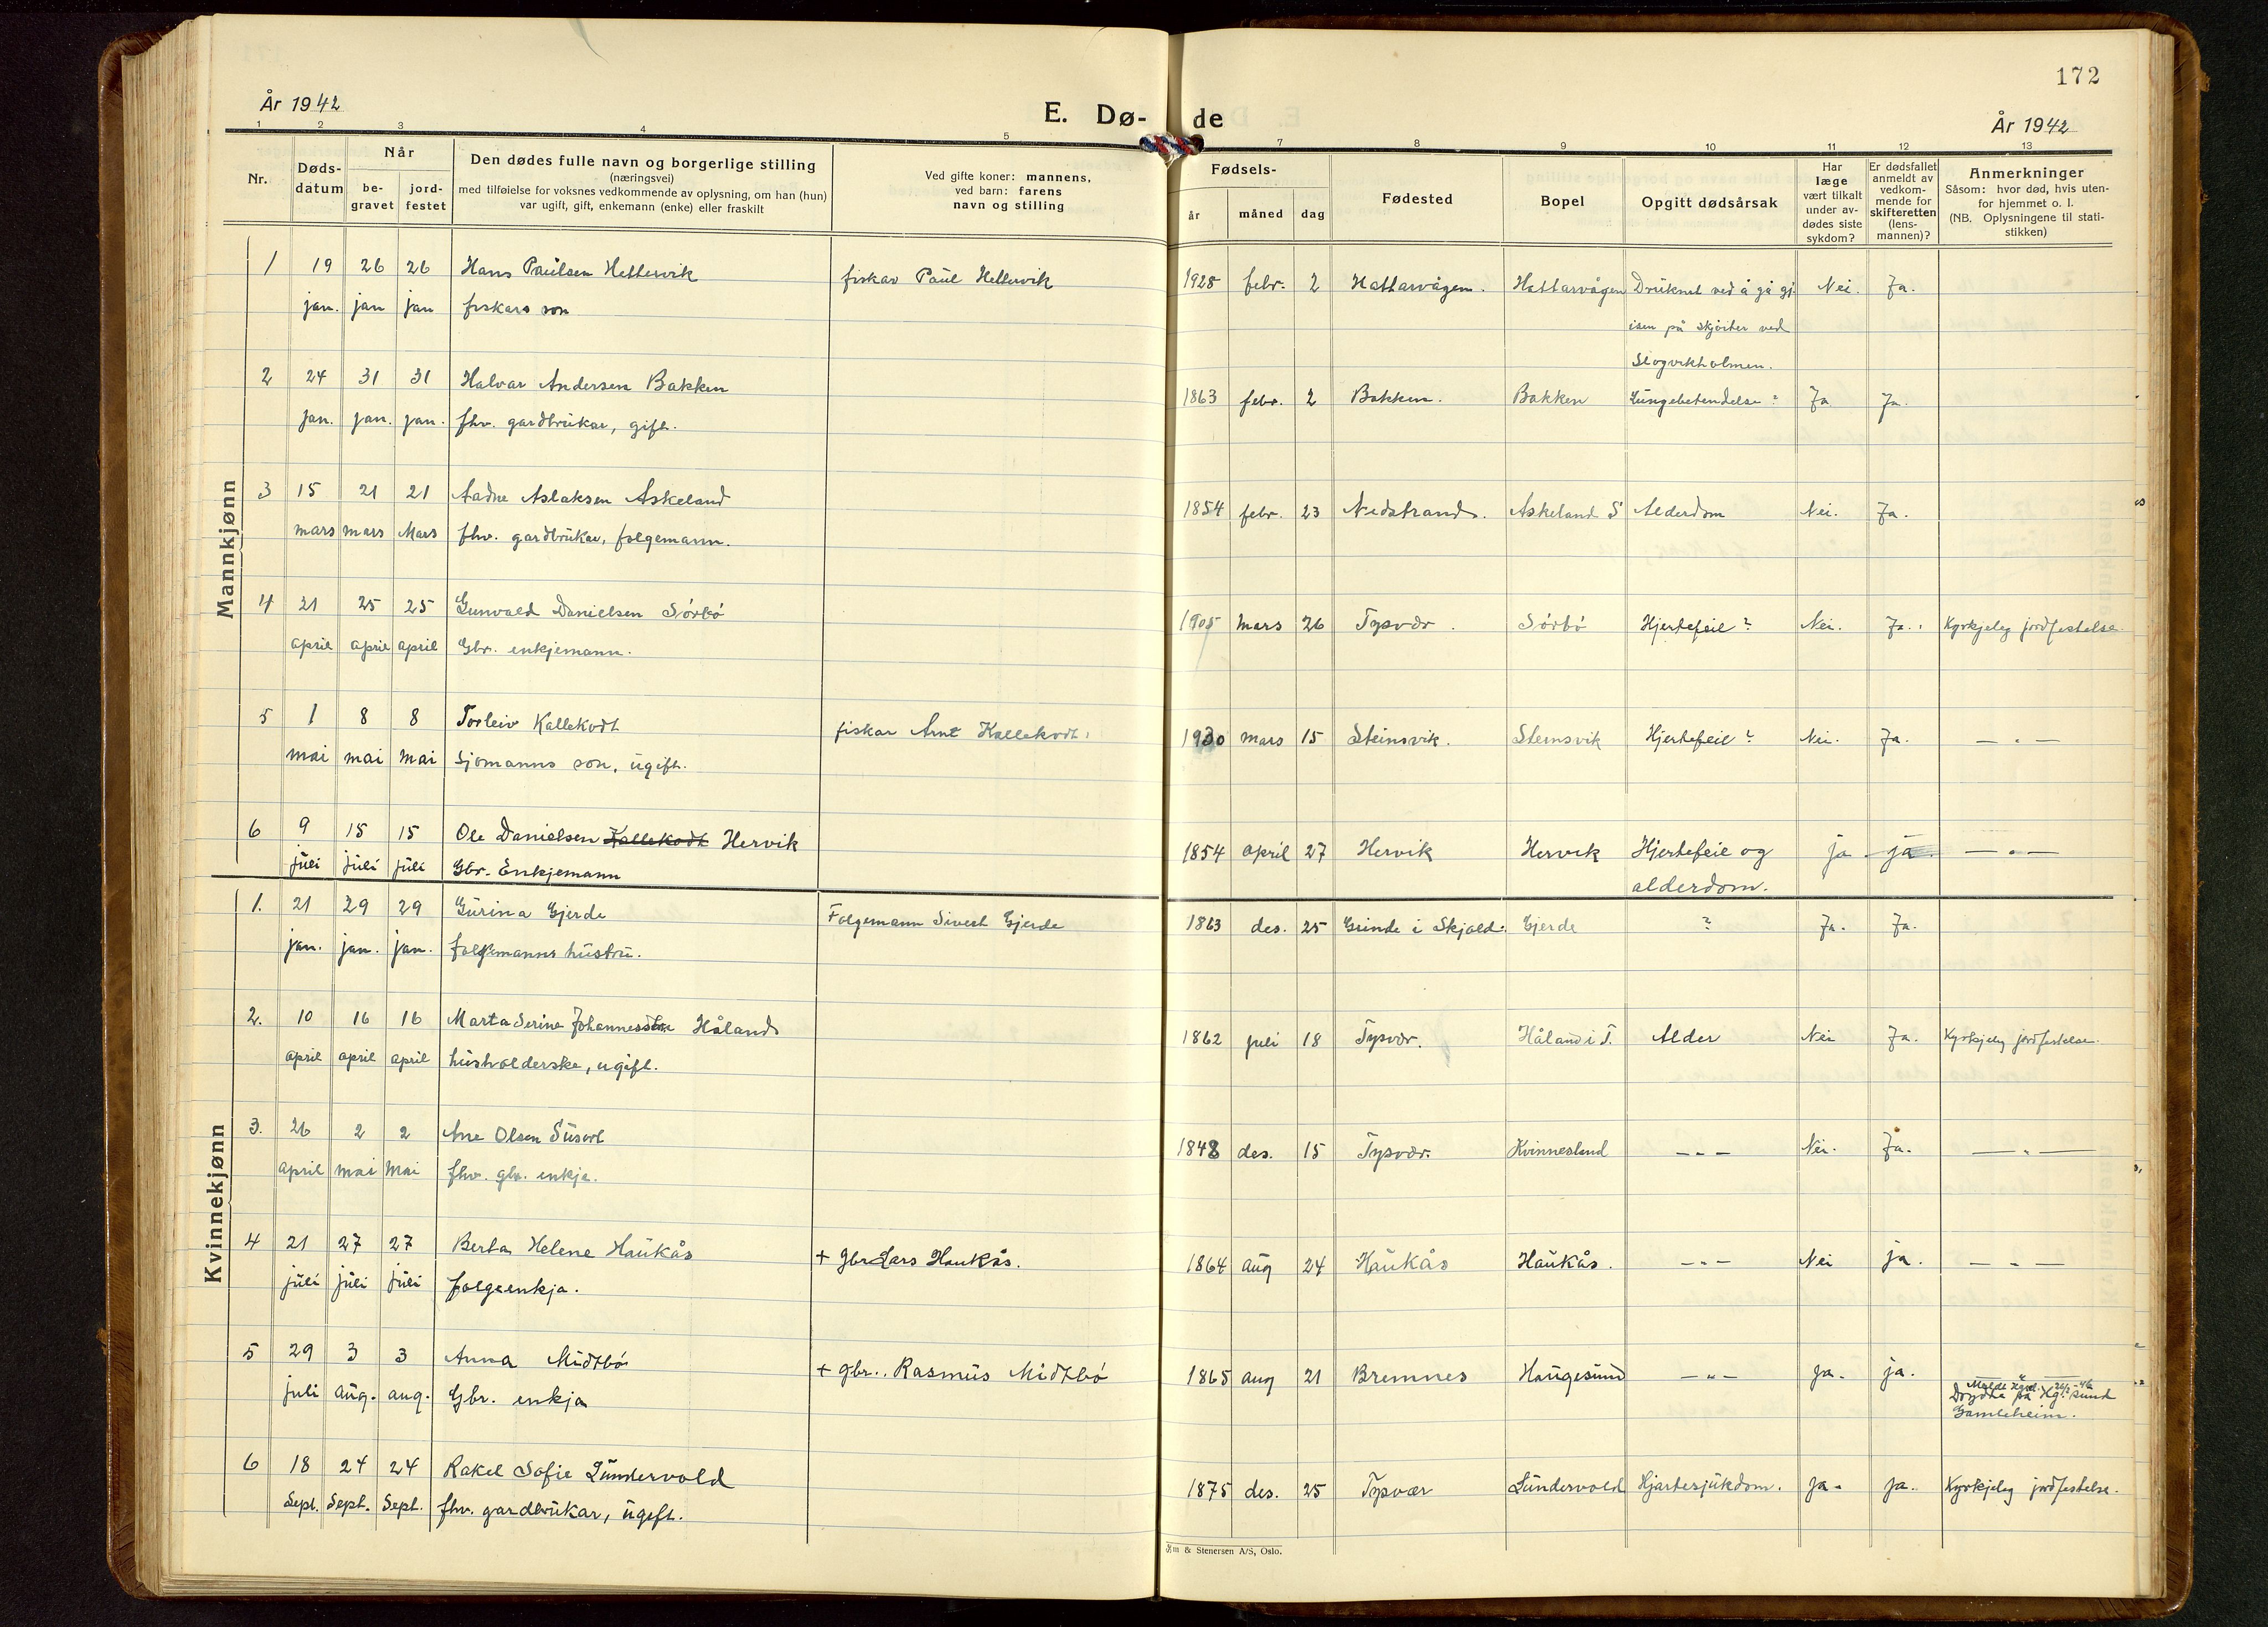 172
År 1942
E. Dø-
de
År 1942
1 2 3 4 5 7 8 9 10 11 12 13
Nr.
Døds-
datum
Når
be-
gravet
jord-
festet
Den dødes fulle navn og borgerlige stilling
(næringsvei)
med tilføielse for voksnes vedkommende av oplysning, om han (hun)
var ugift, gift, enkemann (enke) eller fraskilt
Ved gifte koner: mannens,
ved barn: farens
navn og stilling
Fødsels-
år måned dag
Fødested
Bopel
Opgitt dødsårsak
Har
læge
vært tilkalt
under av-
dødes siste
sykdom?
Er dødsfallet
anmeldt av
vedkom-
mende for
skifteretten
(lens-
mannen)?
Anmerkninger
Såsom: hvor død, hvis uten-
for hjemmet o. l.
(NB. Oplysningene til stati-
stikken)
Mannkjønn
1 19 26 26 Hans Paulsen Hettervik fiskar Paul Hettervik 1928 febr. 2 Hattarvågen. Hattarvågen Druknet ved å gå gj. Nei. Ja.
jan. jan jan fiskars son isen på skjøiter ved
Slogvikholmen.
2 24 31 31 Halvar Andersen Bakken 1863 febr. 2 Bakken. Bakken Lungebetendelse? Ja Ja.
jan. jan. jan. fhv. gardbrukar, gift.
3 15 21 21 Aadne Aslaksen Askeland 1854 febr. 23 Nedstrand. Askeland S Alderdom Nei. Ja.
mars mars Mars fhv. gardbrukar, folgemann.
4 21 25 25 Gunvald Danielsen Sörbö 1905 mars 26 Tysvær. Sörbö Hjertefeil? Nei. Ja. Kyrkjeleg jordfestelse.
april april april Gbr. enkjemann.
5 1 8 8 Torleiv Kallekodt fiskar Arnt Kallekodt. 1930 mars 15 Steinsvik. Steinsvik Hjertefeil? Nei. Ja. — " —
mai mai mai Sjömanns son, ugift.
6 9 15 15 Ole Danielsen Kallekodt Hervik 1854 april 27 Hervik Hervik Hjertefeil og ja ja. — " —
juli juli juli Gbr. Enkjemann alderdom.
Kvinnekjønn
1. 21 29 29 Gurina Gjerde Folgemann Sivert Gjerde 1863 des. 25 Grinde i Skjold. Gjerde ? Ja. Ja.
jan. jan. jan. folgemanns hustru.
2. 10 16 16 Marta Serine Johannesdtr. Håland 1862 juli 18 Tysvær. Håland i T. Alder Nei Ja. Kyrkjeleg jordfestelse.
april april april husholderske, ugift.
3. 26 2 2 Ane Olsen Susort 1848 des. 15 Tysvær. Kvinnesland — " — Nei. Ja. — " —
april mai mai fhv. gbr. enkje.
4 21 27 27 Berta Helene Haukås + gbr Lars Haukås. 1864 aug 24 Haukås Haukås. — " — Nei ja. — " —
juli juli juli folgeenkja.
5 29 3 3 Anna Midtbö + gbr.. Rasmus Midtbö 1865 aug 21 Bremnes Haugesund — " — ja. ja. — " —
juli aug. aug. Gbr. enkja
Döydde på Hg.sund
Gamleheim.
6 18 24 24 Rakel Sofie Lundervold 1875 des. 25 Tysvær Lundervold Hjartesjukdom. ja. ja. Kyrkjeleg jordfestelse.
Sept. Sept. Sept. fhv. gardbrukar, ugift.
& Stenersen A/S, Oslo.